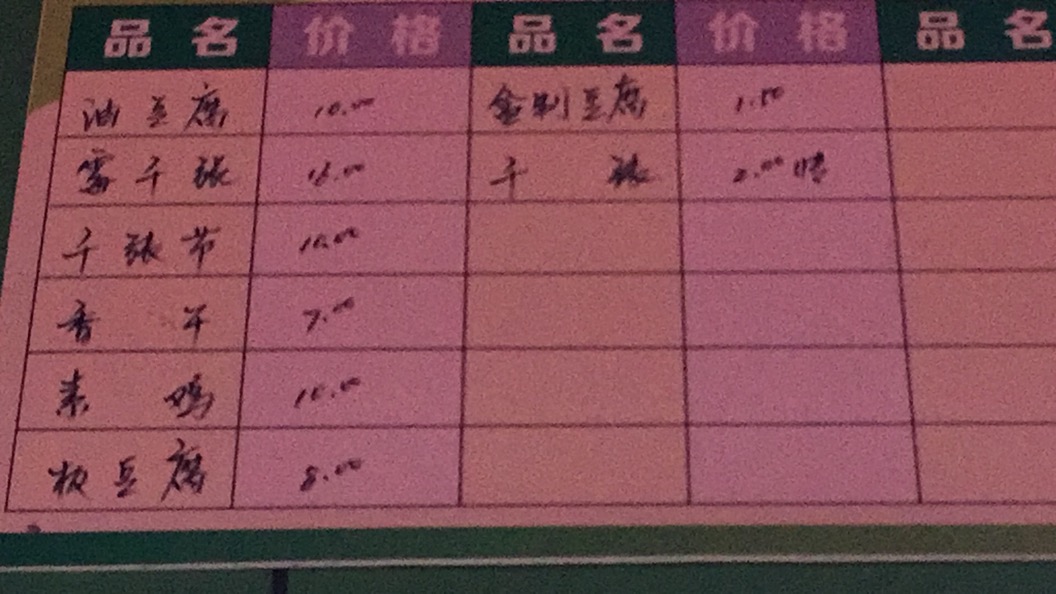 品名 价格 品名 价格 品名
油豆腐 10.00 金制豆腐 1.50
千张 16.00 千张 2.00
千张节 10.00
香干 7.00
素鸡 10.00
板豆腐 8.00